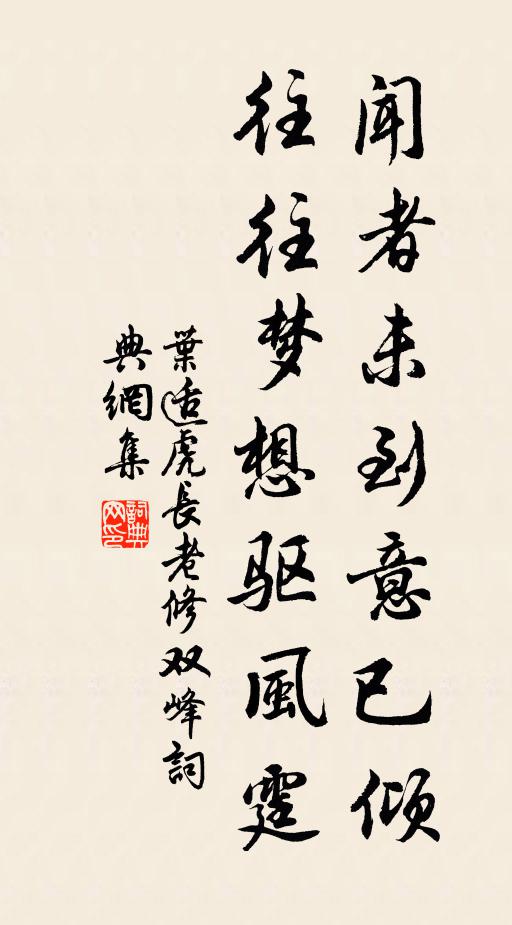 闻者未到意已倾
往往梦想驱風霆
葉适虎長老修双峰詞
典網集
詞典网印